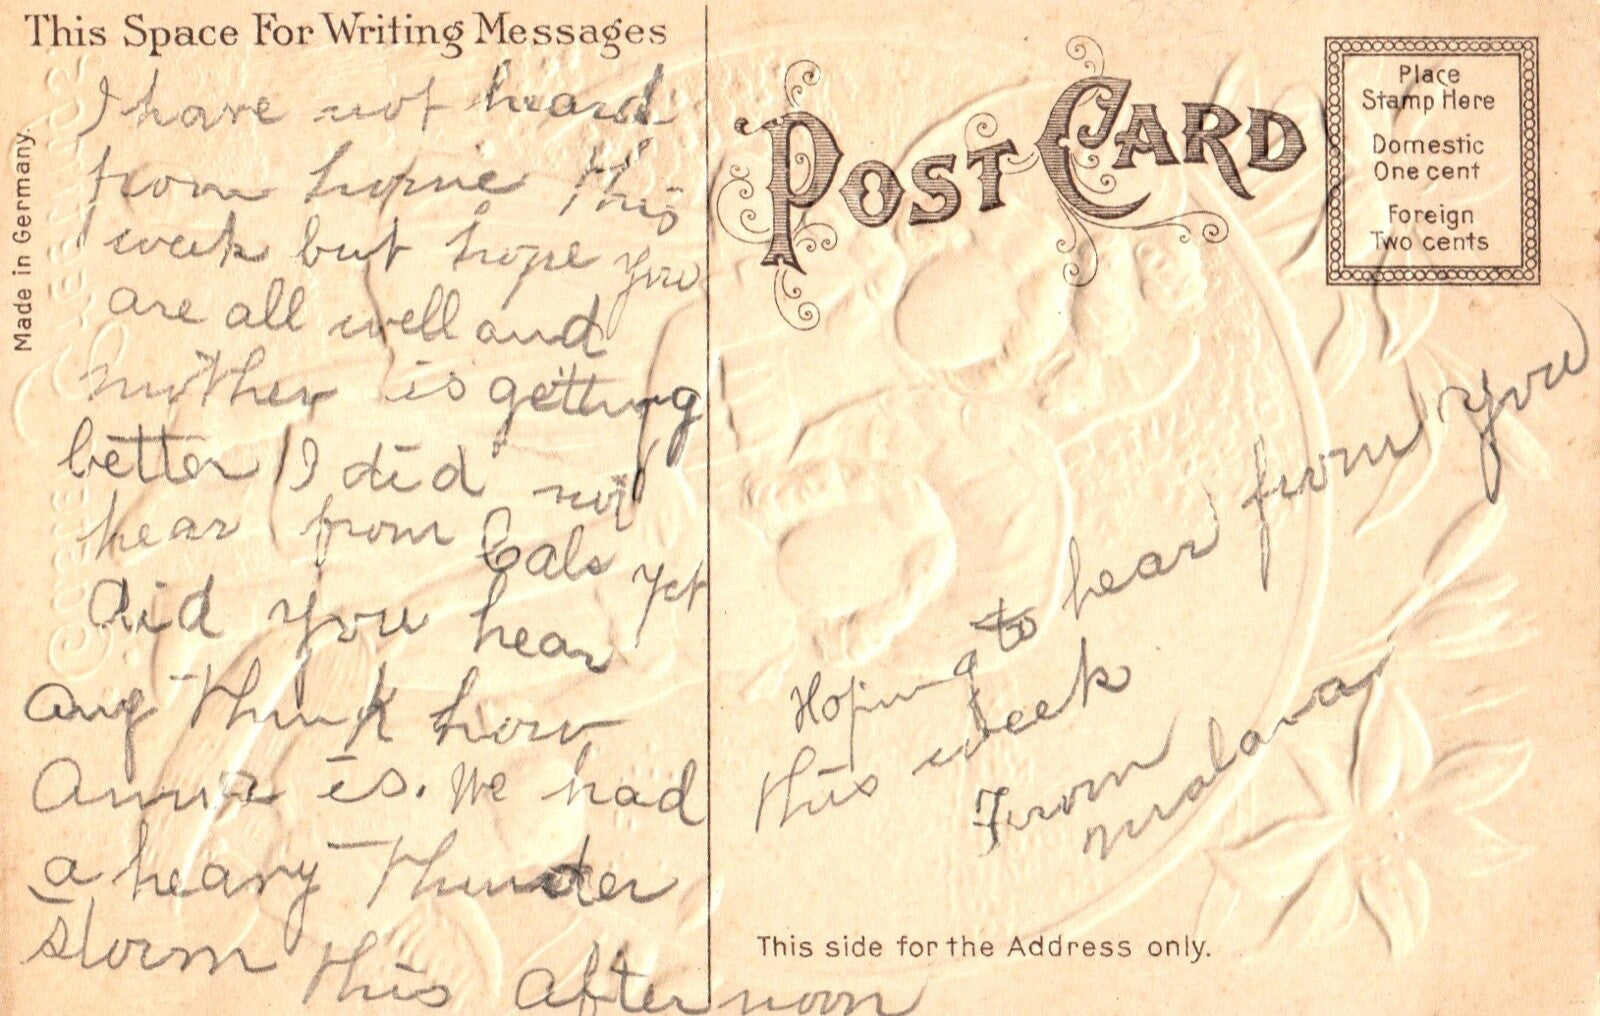 This Space For Writing Messages
I have not heard
from home this
week but hope you
are all well and
mother is getting
better I did not
hear from Cals yet
did you hear
any think how
Anna is. We had
a heavy Thunder
storm this afternoon
Made in Germany.
POST CARD
Place
Stamp Here
Domestic
One cent
Foreign
Two cents
Hoping to hear from you
this week
From
This side for the Address only.